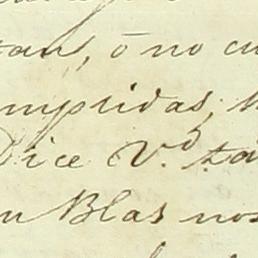 tan, ó no cu
mplidas;
Dice V.d ta
n Blas nos